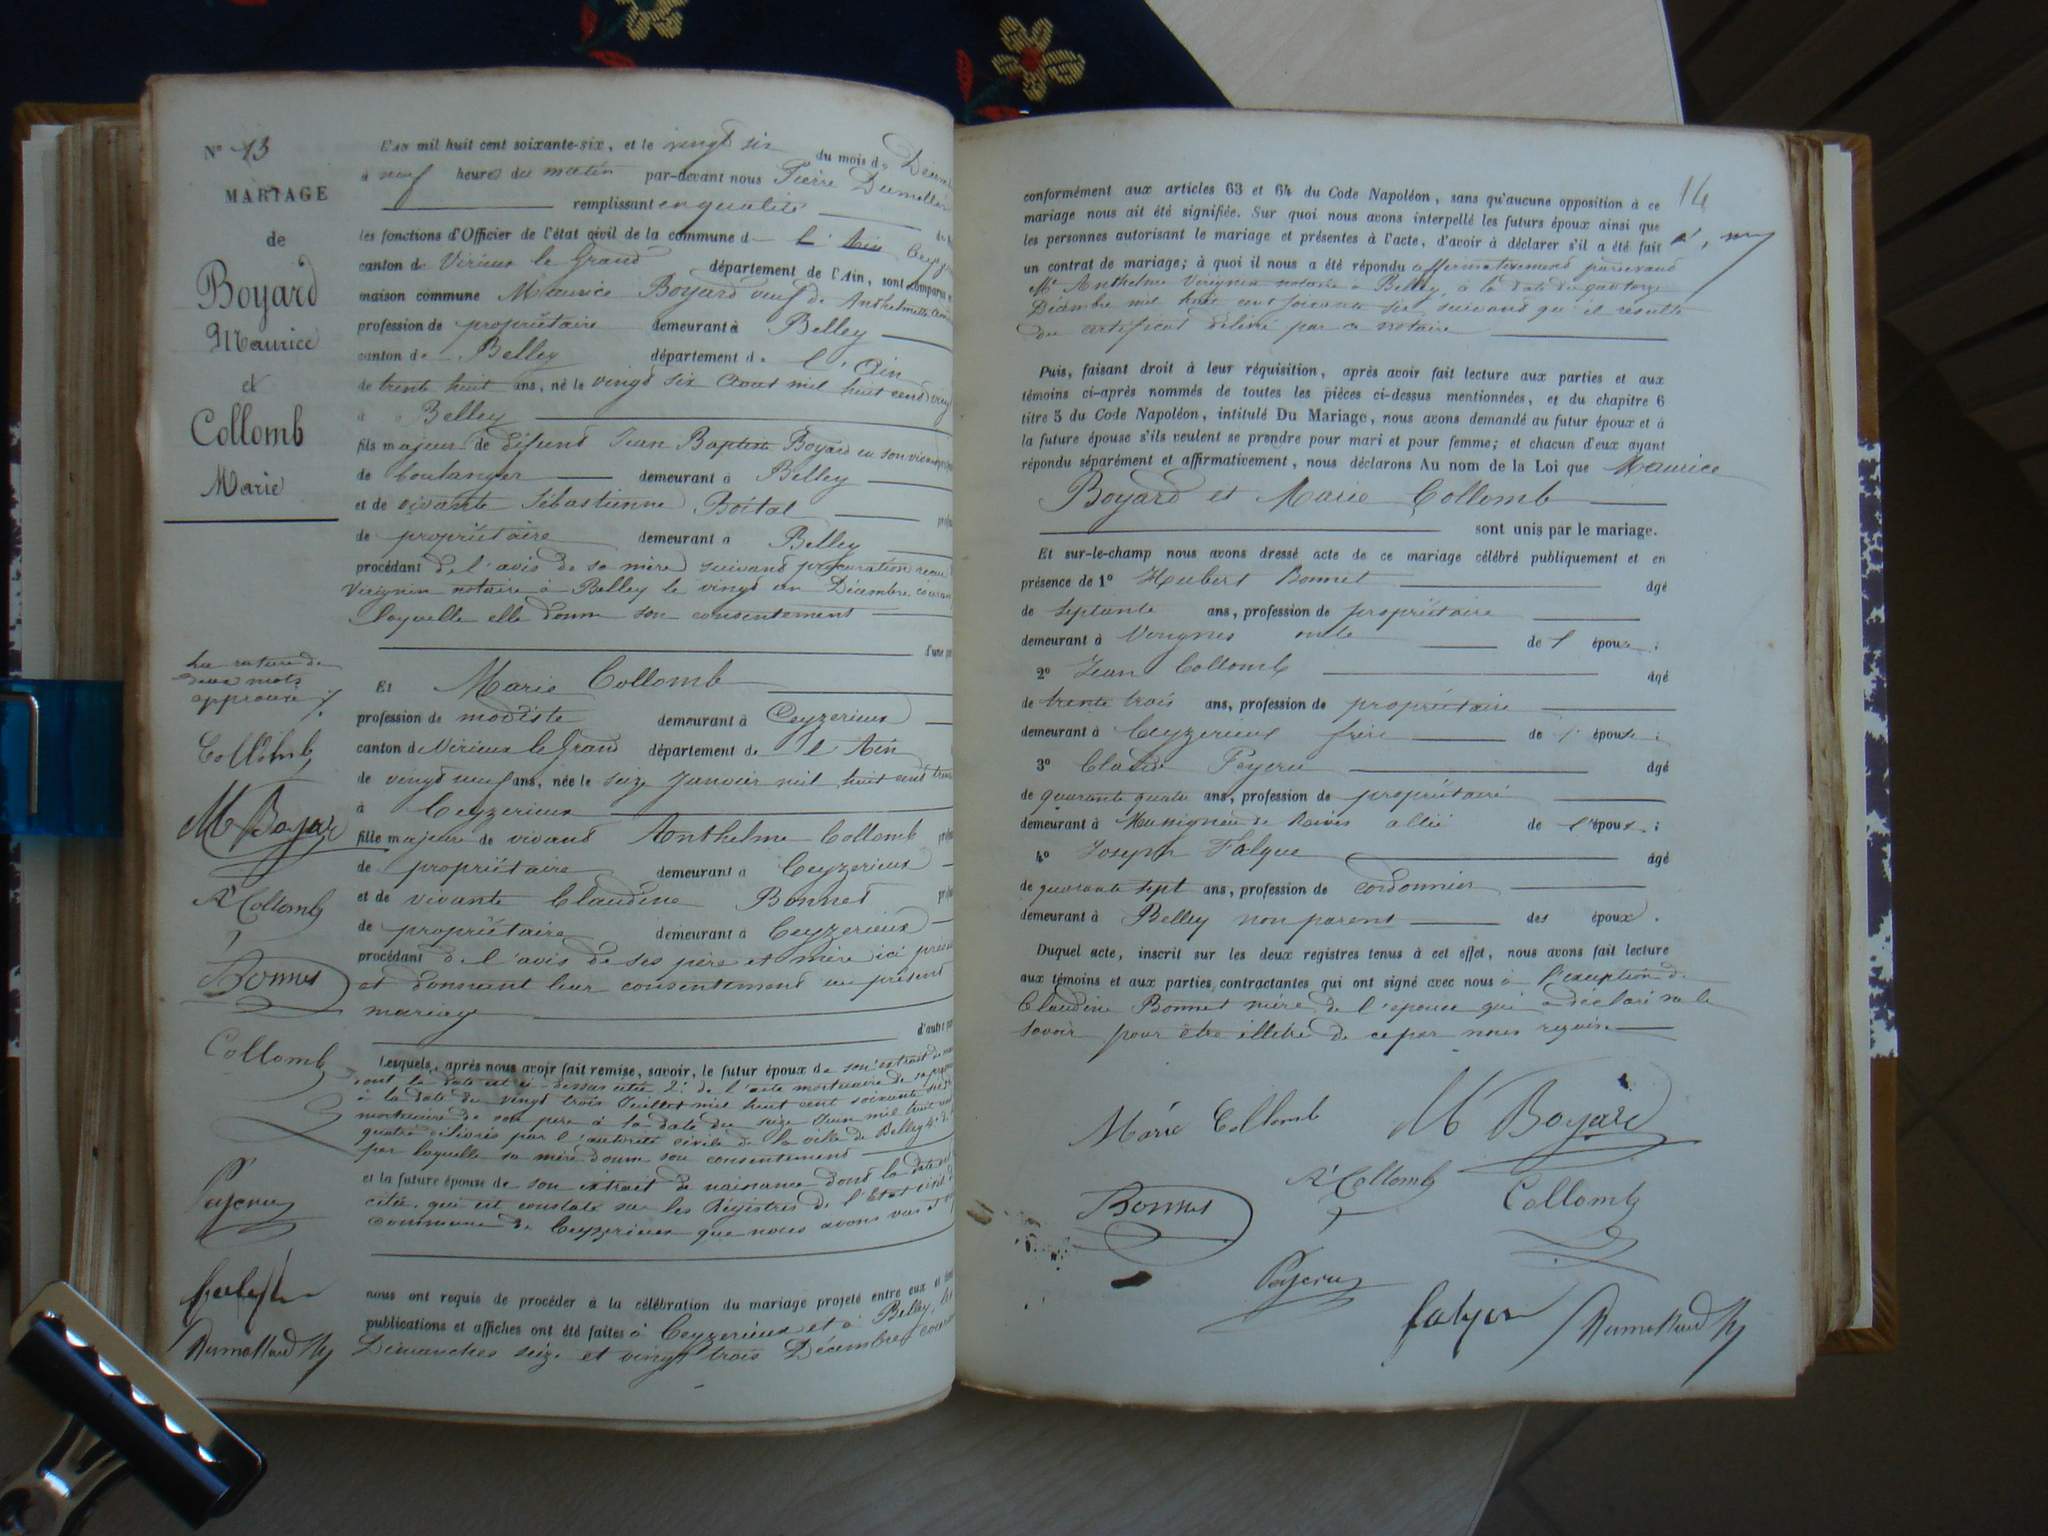 N° 13
MARIAGE
de
Boyard
Maurice
et
Collomb
Marie
L'an mil huit cent soixante-six, et le vingt six du mois de
à neuf heures du matin par-devant nous Pierre
remplissant en qualité
les fonctions d'Officier de l'état civil de la commune d
canton de Virieux le Grand département de l'Ain, sont comparus
maison commune Maurice Boyard veuf de
profession de propriétaire demeurant à Belley
canton de Belley département de l'Ain
de trente huit ans, né le vingt six Aout mil huit cent vingt
à Belley
fils majeur de défunt Jean Baptiste Boyard en son vivant
de boulanger demeurant à Belley
et de vivante Sébastienne Boital
de propriétaire demeurant à Belley
procédant de l'avis de sa mère suivant procuration recue
notaire à Belley le vingt un Décembre courant
laquelle elle donne son consentement
d'une part
La rature de
deux mots
approuvé
Et Marie Collomb
profession de modiste demeurant à Ceyzerieux
canton de Virieux le Grand département de l'Ain
de vingt neuf ans, née le seize Janvier mil huit cent
à Ceyzerieux
fille majeure de vivant Anthelme Collomb
de propriétaire demeurant à Ceyzerieux
et de vivante Claudine Bonnet
de propriétaire demeurant à Ceyzerieux
procédant de l'avis de ses père et mère ici
et donnant leur consentement au présent
mariage
d'autre part
Collomb
M Boyard
A Collomb
Bonnet
Collomb
Lesquels, après nous avoir fait remise, savoir, le futur époux de son extrait de
dont la date est ci-dessus citée 2° de l'acte mortuaire de sa
à la date du vingt trois Juillet mil huit cent soixante
mortuaire de son père à la date du seize Juin mil huit cent
quatre délivrés par l'autorité civile de la ville de Belley 4°
par laquelle sa mère donne son consentement
et la future épouse de son extrait de naissance dont la date
citée, qui est constaté sur les Régistres de l'Etat civil
commune de Ceyzerieux que nous avons vus
nous ont requis de procéder à la célébration du mariage projeté entre eux
publications et affiches ont été faites à Ceyzerieux et à Belley, les
Dimanches seize et vingt trois Décembre courant
14
conformément aux articles 63 et 64 du Code Napoléon, sans qu'aucune opposition à ce
mariage nous ait été signifiée. Sur quoi nous avons interpellé les futurs époux ainsi que
les personnes autorisant le mariage et présentes à l'acte, d'avoir à déclarer s'il a été fait
un contrat de mariage; à quoi il nous a été répondu affirmativement pardevant
Me Anthelme notaire à Belley, à la date du quatorze
Décembre mil huit cent soixante six suivant qu'il résulte
du certificat délivré par ce notaire
Puis, faisant droit à leur réquisition, après avoir fait lecture aux parties et aux
témoins ci-après nommés de toutes les pièces ci-dessus mentionnées, et du chapitre 6
titre 5 du Code Napoléon, intitulé Du Mariage, nous avons demandé au futur époux et à
la future épouse s'ils veulent se prendre pour mari et pour femme; et chacun d'eux ayant
répondu séparément et affirmativement, nous déclarons Au nom de la Loi que Maurice
Boyard et Marie Collomb
sont unis par le mariage.
Et sur-le-champ nous avons dressé acte de ce mariage célébré publiquement et en
présence de 1° Hubert Bonnet âgé
de septante ans, profession de propriétaire
demeurant à Vongnes oncle de l'épouse;
2° Jean Collomb âgé
de trente trois ans, profession de propriétaire
demeurant à Ceyzerieux frère de l'épouse;
3° Claude Peyeru âgé
de quarante quatre ans, profession de propriétaire
demeurant à Massignieu de Rives allié de l'époux;
4° Joseph Falque âgé
de quarante sept ans, profession de cordonnier
demeurant à Belley non parent des époux.
Duquel acte, inscrit sur les deux registres tenus à cet effet, nous avons fait lecture
aux témoins et aux parties contractantes qui ont signé avec nous à l'exception de
Claudine Bonnet mère de l'épouse qui a déclaré ne le
savoir pour être illétré de ce par nous requise
Marie Collomb
M Boyard
A Collomb
Bonnet
Collomb